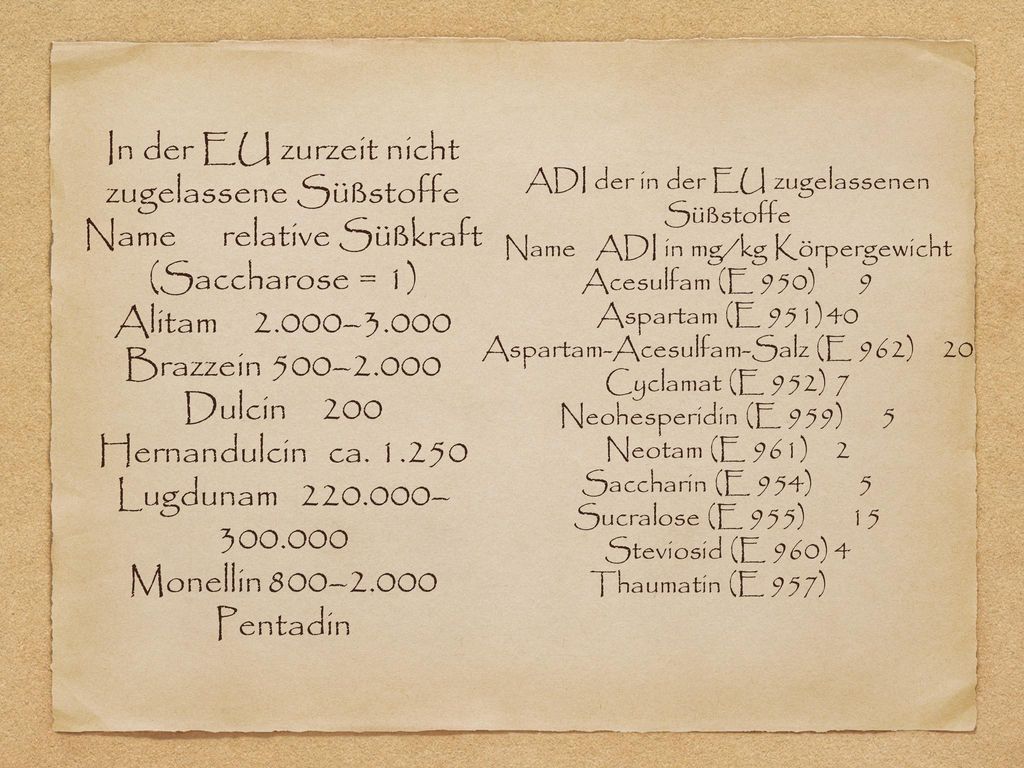 In der EU zurzeit nicht
zugelassene Süßstoffe
Name relative Süßkraft
(Saccharose = 1)
Alitam 2.000–3.000
Brazzein 500–2.000
Dulcin 200
Hernandulcin ca. 1.250
Lugdunam 220.000–
300.000
Monellin 800–2.000
Pentadin
ADI der in der EU zugelassenen
Süßstoffe
Name ADI in mg/kg Körpergewicht
Acesulfam (E 950) 9
Aspartam (E 951) 40
Aspartam-Acesulfam-Salz (E 962) 20
Cyclamat (E 952) 7
Neohesperidin (E 959) 5
Neotam (E 961) 2
Saccharin (E 954) 5
Sucralose (E 955) 15
Steviosid (E 960) 4
Thaumatin (E 957)